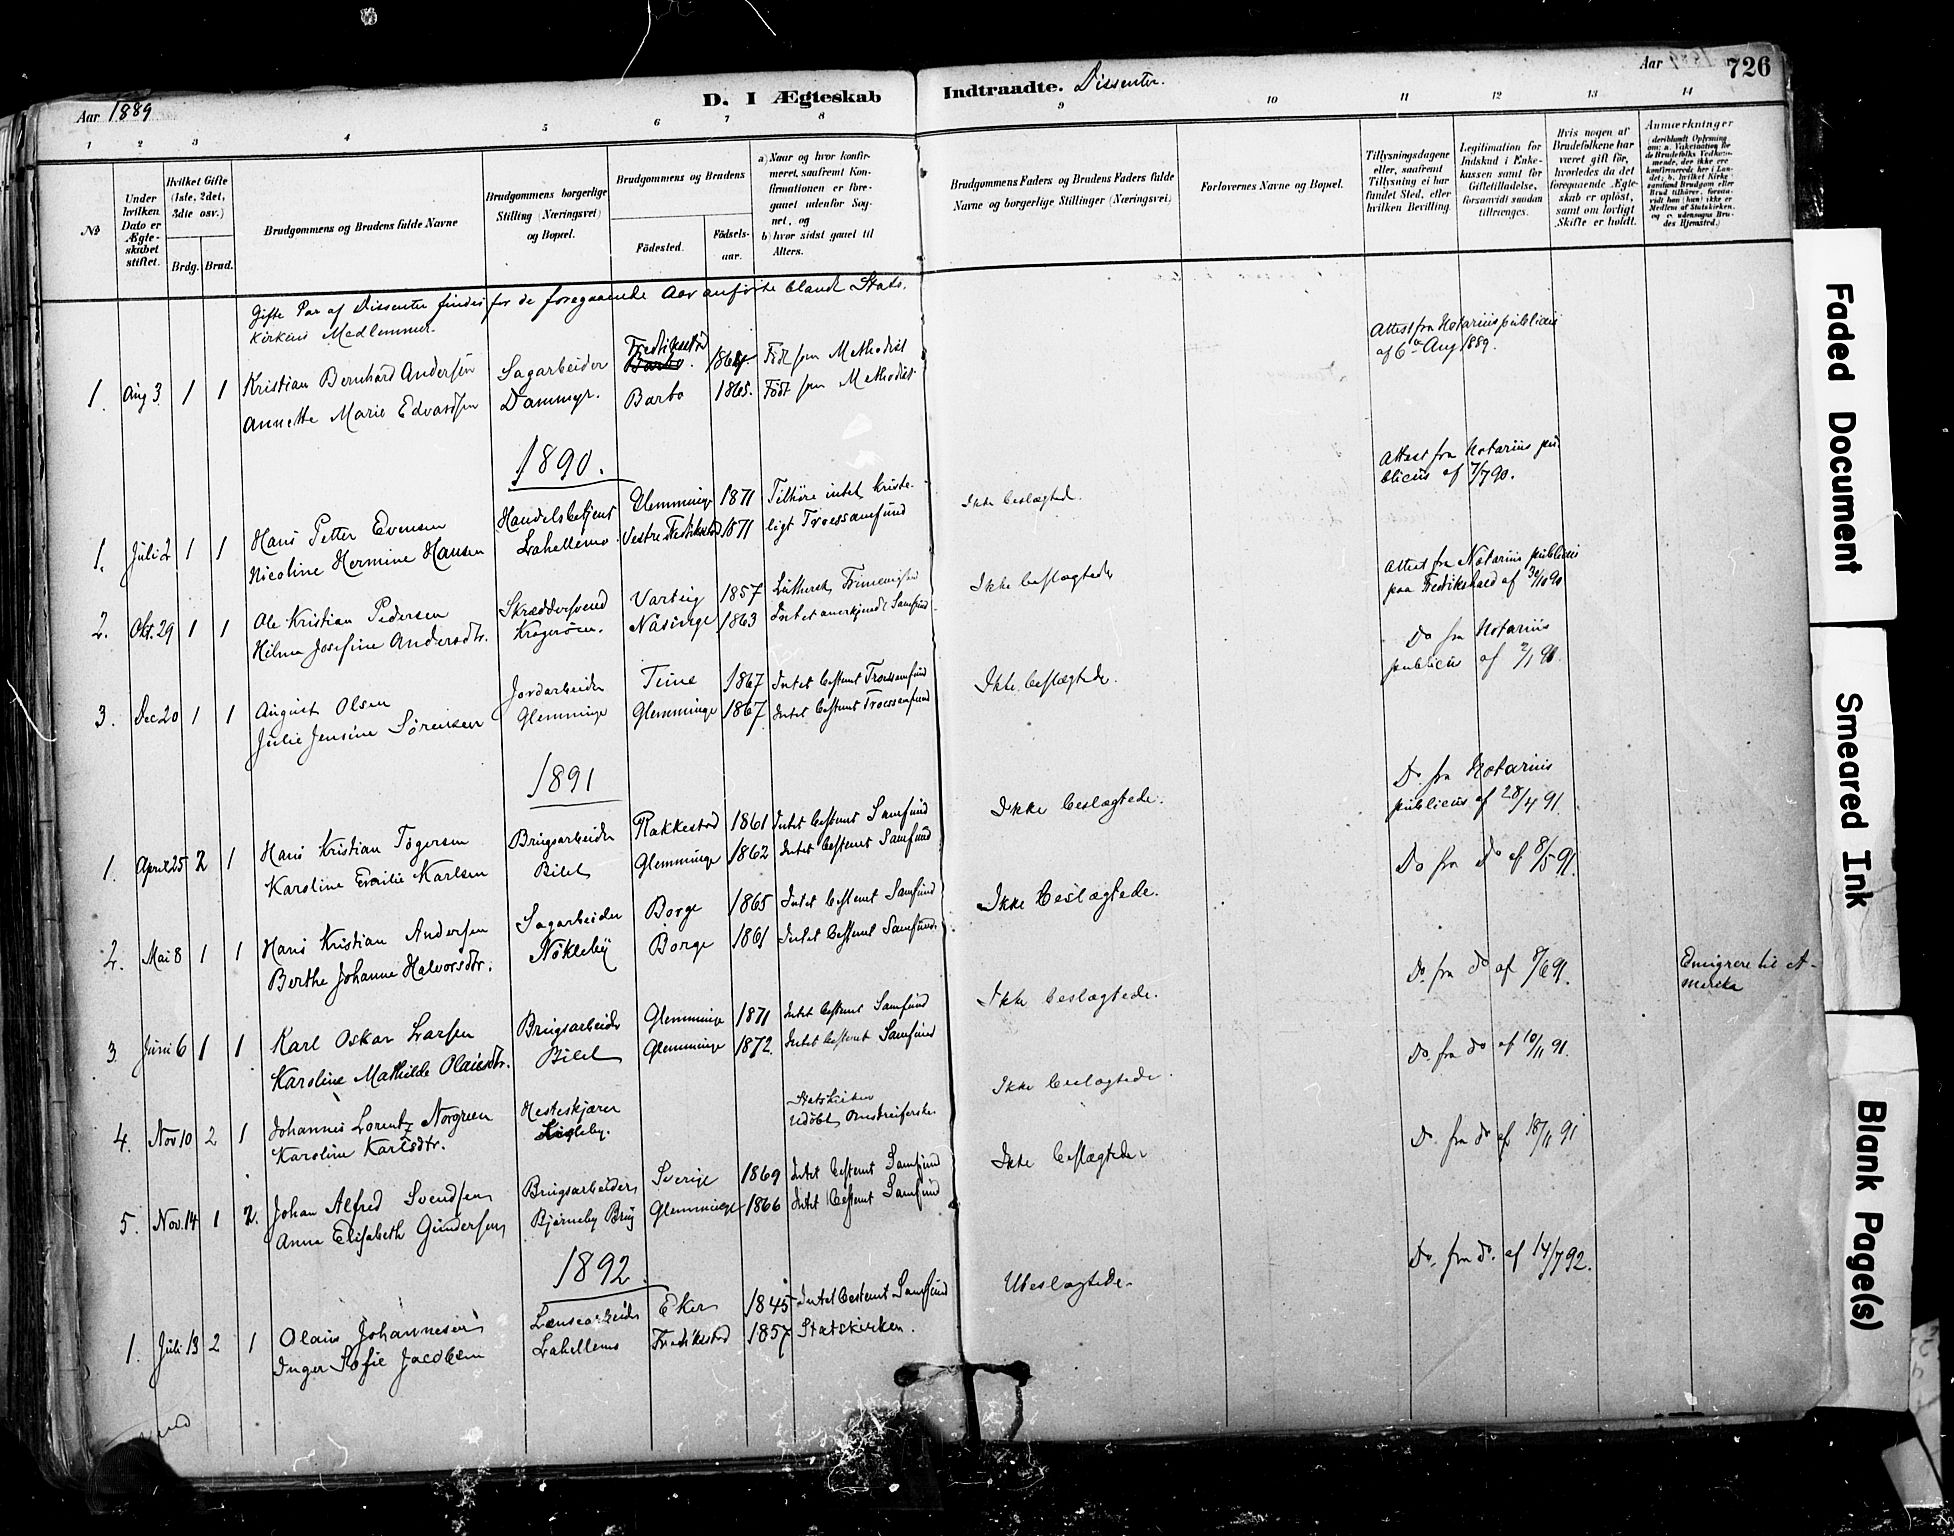 Aar 1889
D. I Ægteskab Indtraadte. Dissenter.
Aar
726
1 2 3 4 5 6 7 8 9 10 11 12 13 14
No
Under hvilken Dato er Ægteskabet stiftet.
Hvilket Gifte (1ste, 2det, 3dte osv.)
Brdg. Brud.
Brudgommens og Brudens fulde Navne
Brudgommens borgerlige Stilling (Næringsvei) og Bopæl.
Brudgommens og Brudens
Födested.
Födselsaar.
a) Naar og hvor konfirmeret, saafremt Konfirmationen er foregaaet udenfor Sognet, og
b) hvor sidst gaaet til Alters.
Brudgommens Faders og Brudens Faders fulde Navne og borgerlige Stillinger (Næringsvei)
Forlovernes Navne og Bopæl.
Tillysningsdagene eller, saafremt Tillysning ei har fundet Sted, efter hvilken Bevilling.
Legitimation for Indskud i Enkekassen samt for Giftetilladelse, forsaavidt saadan tiltrænges.
Hvis nogen af Brudefolkene har været gift för, hvorledes da det foregaaende Ægteskab er oplöst, samt om lovligt Skifte er holdt.
Anmærkninger
(deriblandt Oplysning om: a. Vakcination for de Brudefolks Vedkommende, der ikke ere konfirmerede her i Landet; b. hvilket Kirkesamfund Brudgom eller Brud tilhörer, forsaavidt han (hun) ikke er Medlem af Statskirken, og c. udensogns Brudes Hjemsted.)
Gifte Par af Dissenter findes for de foregaaende Aar anförte blandt Stats-
kirkens Medlemmer.
1. Aug 3. 1 1 Kristian Bernhard Andersen Sagarbeider Fredrikstad Barbo. 1864 Födt som Methodist Attest fra Notarius publicus
af 6te Aug 1889.
Annette Marie Edvardsen Dammyr. Barbo 1865. Födt som Methodist
1890.
1. Juli 2 1 1 Hans Petter Evensen Handelsbetjent Glemminge 1871 Tilhöre intet kriste- Ikke beslægted. Attest fra Notarius pu-
blicus af 7/7 90.
Nicoline Hermine Hansen Lahellemo. Vestre Fredrikstad 1871 ligt Troessamfund
2. Okt. 29 1 1 Ole Kristian Pedersen Skræddersvend Varteig 1857 Luthersk Frimenighed Ikke beslægtede Attest fra Notarius publicus
paa Fredrikshald af 30/10 90
Hilma Josefine Andersdtr. Krageröen. Näsinge 1863 Intet anerkjendt Samfund
3. Dec 20 1 1 August Olsen Jordarbeider Tune 1867 Intet bestemt Troessamfund Ikke beslægtede. Do fra Notarius
publicus af 2/1 91.
Julie Jensine Sörensen Glemminge Glemminge 1867 Intet bestemt Troessamfund
1891
1. April 25 2 1 Hans Kristian Tögersen Brugsarbeider Rakkestad 1861 Intet bestemt Samfund Ikke beslægtede. Do fra Notarius
publicus af 28/4 91.
Karoline Emilie Karlsen Bilet Glemminge 1862 Intet bestemt Samfund
2. Mai 8 1 1 Hans Kristian Andersen Sagarbeider Borge 1865 Intet bestemt Samfund Ikke beslægtede. Do fra do af 8/5 91.
Berthe Johanne Halvorsdtr. Nökleby Borge 1861 Intet bestemt Samfund.
3 Juni 6 1 1 Karl Oskar Larsen Brugsarbeider Glemminge 1871 Intet bestemt Samfund Ikke beslægtede. Do. fra do af 8/6 91. Emigrere til A-
merika
Karoline Mathilde Olausdtr. Bilet Glemminge 1872. Intet bestemt Samfund
4. Nov 10 2 1 Johannes Lorentz Norgreen Hesteskjærer Statskirken Ikke beslægtede. Do. fra do af 10/11 91.
Karoline Karlsdtr. Udöbt Omstreiferske.
5. Nov. 14 1 2. Johan Alfred Svendsen Brugsarbeider Sverige 1869 Intet bestemt Samfund Ikke beslægtede. Do. fra do af 18/11 91
Anna Elisabeth Gundersen Bjørneby Brug Glemminge 1866 Intet bestemt Samfund
1892.
1. Juli 13 2 1 Olaus Johannesen Lænsearbeider Eker 1845 Intet bestemt Samfund Ubeslægtede. Do. fra do. af 14/7 92.
Inger Sofie Jacobsen Lahellemo Fredrikstad 1857 Statskirken.
Faded Document
Smeared Ink
Blank Page(s)